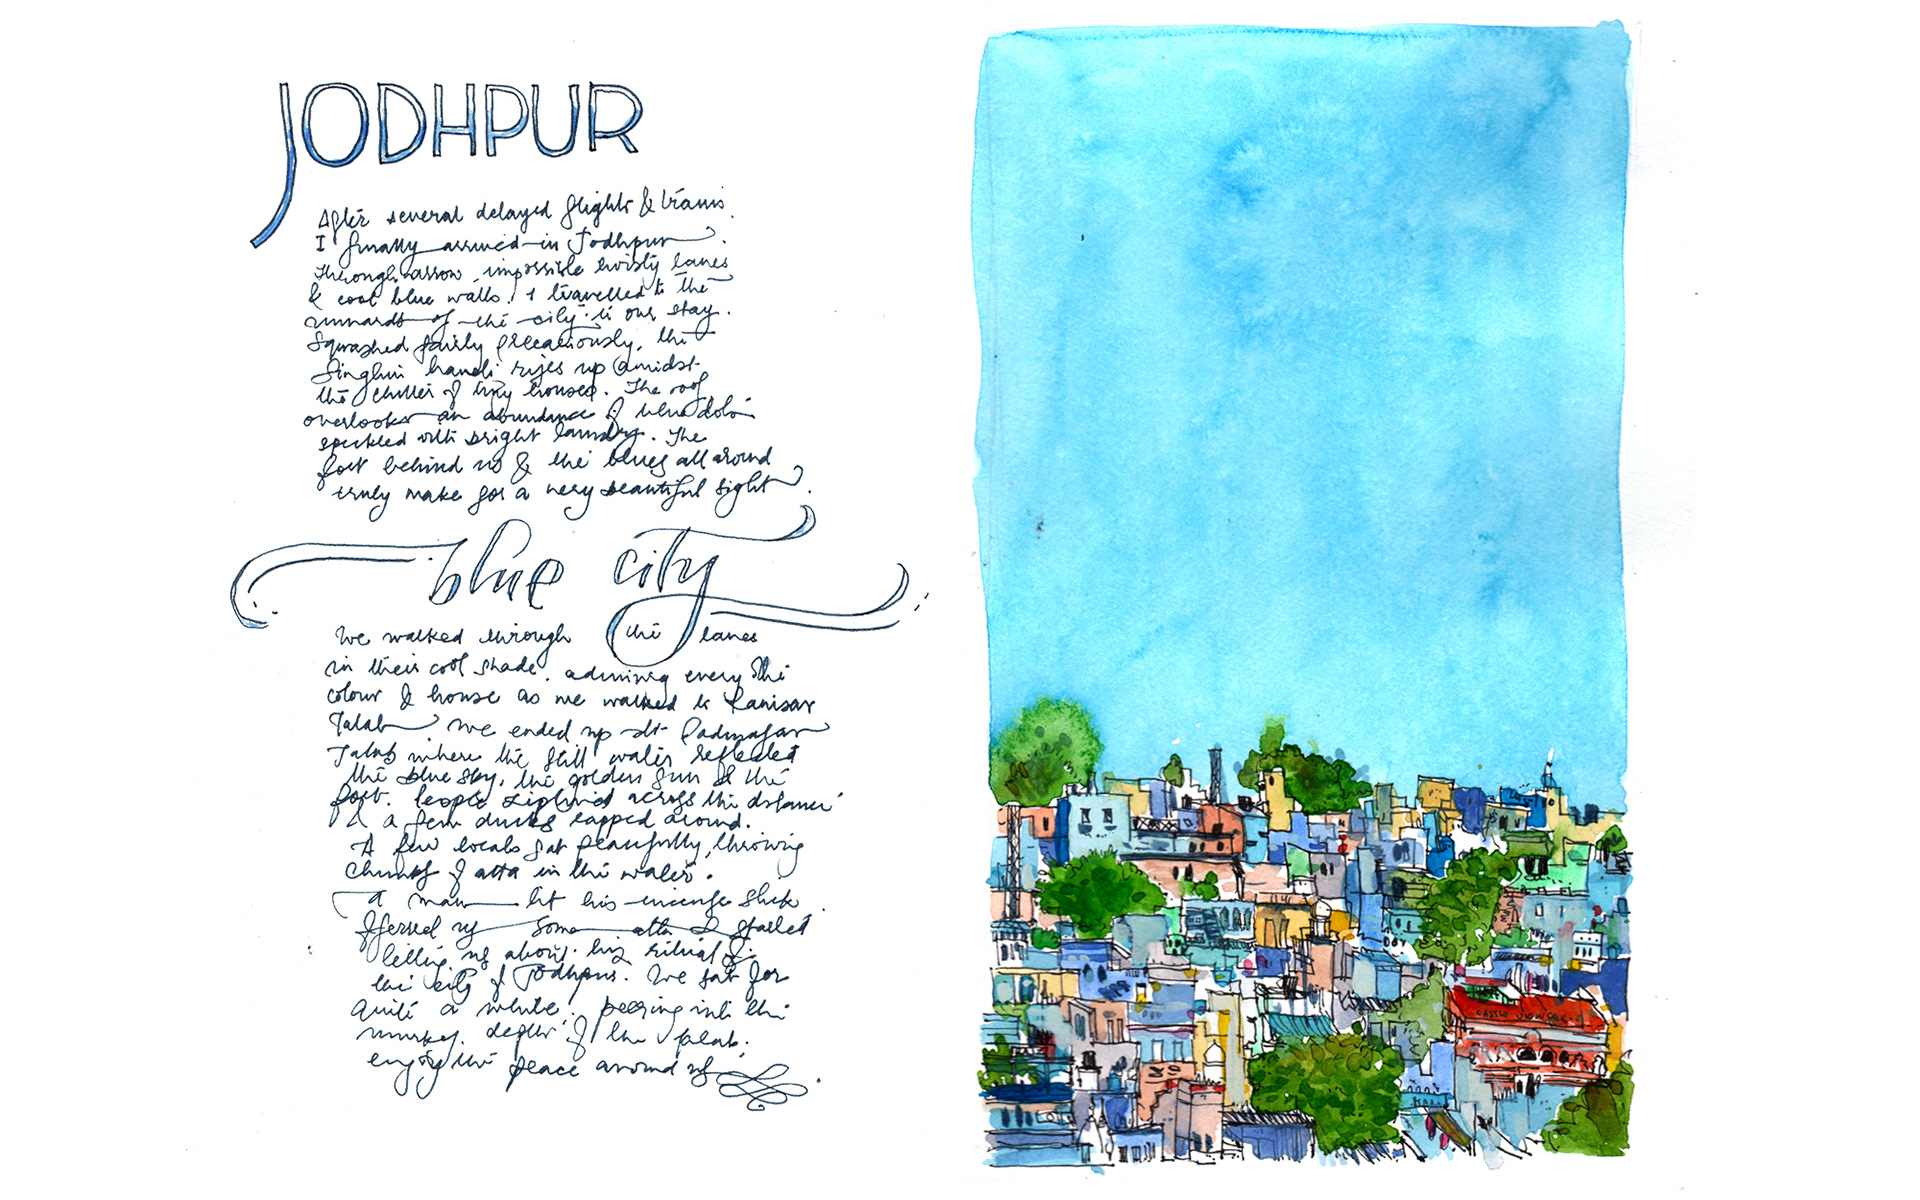 JODHPUR
After several delayed flights & trains
I finally arrived in Jodhpur.
Through narrow impossible twisty lanes
& cool blue walls. I travelled to the
innards of the city to our stay.
Squashed fairly precariously, the
Singhvi haveli rises up amidst
the clutter of tiny houses. The roof
overlooks an abundance of blue dots
speckled with bright laundry. The
fort behind us & the blues all around
truly make for a very beautiful sight.
blue city
We walked through the lanes
in their cool shade. admiring every
colour & house as we walked to Ranisar
Talab We ended up at Padmasar
Talab where the still water reflected
the blue sky, the golden sun & the
fort. People ziplined across the distance
& a few ducks lapped around.
A few locals sat peacefully, throwing
chunks of atta in the water.
A man lit his incense stick
offered us some atta & started
telling us about his ritual &
the city of Jodhpur. We sat for
quite a while. peering into the
murky depths of the talab.
enjoy the peace around us
CASTLE VIEW